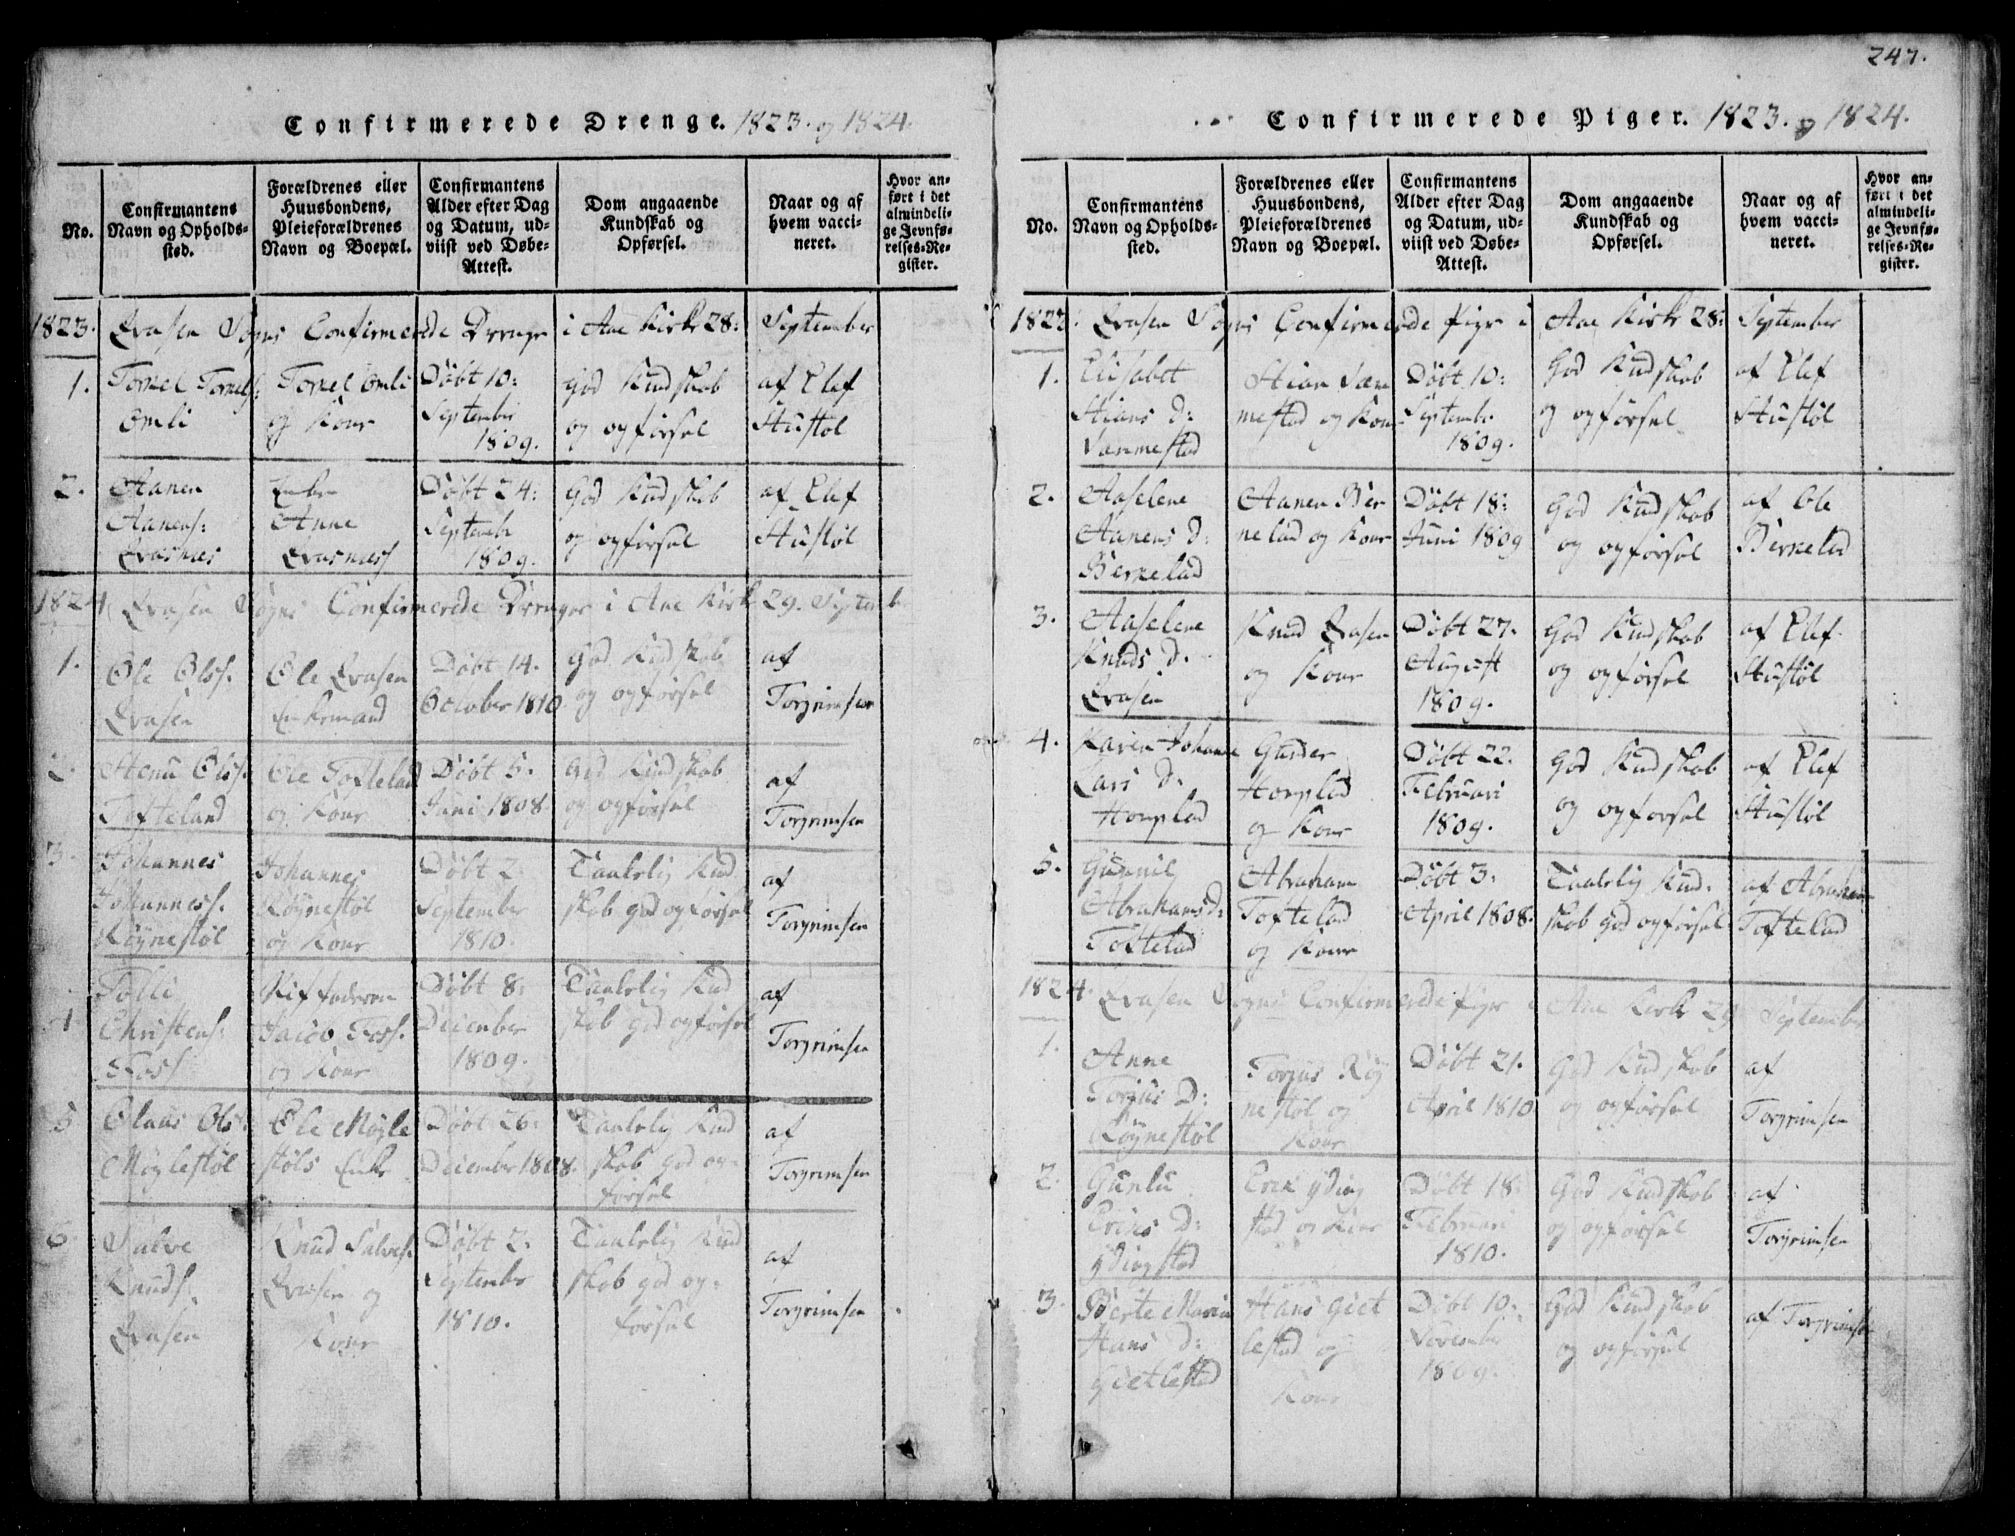 247.
Confirmerede Drenge. 1823. og 1824.
No.
Confirmantens
Navn og Opholds-
sted.
Forældrenes eller
Huusbondens,
Pleieforældrenes
Navn og Boepæl.
Confirmantens
Alder efter Dag
og Datum, ud-
viist ved Døbe-
Attest.
Dom angaaende
Kundskab og
Opførsel.
Naar og af
hvem vacci-
neret.
Hvor an-
ført i det
almindeli-
ge Jevnfø-
relses-Re-
gister.
1823. Evasen Sogns Confirmerede Drenge i Aae Kirke 28: September
1.
Torkel Torkels:
Omli
Torkel Omli
og Kone
Døbt 10:
September
1809.
God Kundskab
og opførsel
af Elef
Stustøl
2.
Aanen
Aanens:
Evasnæs
Enken
Anne
Evasnæss
Døbt 24:
September
1809.
God Kundskab
og opførsel
af Elef
Stustøl
1824 Evasen Sogns Confirmerede Drenge i Aae Kirke 29. September
1.
Ole Olss.
Evasen
Ole Evasen
Enkemand
Døbt 14.
October 1810
God Kundskab
og opførsel
af
Torgrimsen
2.
Olss.
Tofteland
Ole Tofteland
og Kone
Døbt 5.
Juni 1808.
God Kundskab
og opførsel
af
Torgrimsen
3.
Johannes
Johanness.
Røynestøl
Johannes
Røynestøl
og Kone
Døbt 2.
September
1810.
Taalelig Kund
skab god opførsel
af
Torgrimsen
4
Tolli
Christens:
Foss
Stiffaderen
Jacob Foss.
og Kone
Døbt 8:
December
1809.
Taalelig Kund
skab god opførsel
af
Torgrimsen
5
Olaus Ols:
Møglestøl
Ole Møgle
støls Enke
Døbt 26:
December 1808.
Taalelig Kund
skab god op-
førsel
af
Torgrimsen
6.
Salve
Knuds.
Evasen
Knud Salves.
Evasen og
Kone
Døbt 2:
September
1810.
Taalelig Kund
skab god op-
førsel
af
Torgrimsen
Confirmerede Piger. 1823. og 1824.
No.
Confirmantens
Navn og Opholds-
sted.
Forældrenes eller
Huusbondens,
Pleieforældrenes
Navn og Boepæl.
Confirmantens
Alder efter Dag
og Datum, ud-
viist ved Døbe-
Attest.
Dom angaaende
Kundskab og
Opførsel.
Naar og af
hvem vacci-
neret.
Hvor an-
ført i det
almindeli-
ge Jevnfø-
relses-Re-
gister.
1823. Evasen Sogns Confirmerede Piger i Aae Kirke 28: September
1.
Elisabet
Stians D:
Vammestad
Stian Vam
mestad og Kone
Døbt 10:
September
1809.
God Kundskab
og opførsel
af Elef
Stustøl
2.
Aaselene
Aanens D:
Berkelad
Aanen Ber
kelad og Kone
Døbt 18:
Juni 1809
God Kundskab
og opførsel
af Ole
Berkelad
3.
Aaselene
Knuds D.
Evasen
Knud Evasen
og Kone
Døbt 27.
August
1809.
God Kundskab
og opførsel
af Elef
Stustøl
4.
Karen Johanne
Lars D:
Hompland
Hompland
og Kone
Døbt 22.
Februari
1809.
God Kundskab
og opførsel
af Elef
Stustøl
5.
Gunnil
Abrahams D:
Tofteland
Abraham
Tofteland
og Kone
Døbt 3:
April 1808.
Taalelig Kund-
skab god opførsel
af Abraham
Tofteland
1824. Evasen Sogns Confirmerede Piger i Aae Kirke 29 September
1.
Anne
Torjus D:
Røynestøl
Torjus Røy
nestøl og
Kone
Døbt 21.
April 1810
God Kundskab
og opførsel
af
Torgrimsen
2.
Gunlu
Eriks D:
Ydingstad
Erik Yding
stad og Kone
Døbt 18:
Februari
1810.
God Kundskab
og opførsel
af
Torgrimsen
3.
Berte Maria
Hans D:
Gietlestad
Hans Giet
lestad og
Kone
Døbt 10:
November
1809.
God Kundskab
og opførsel
af Torgrimsen